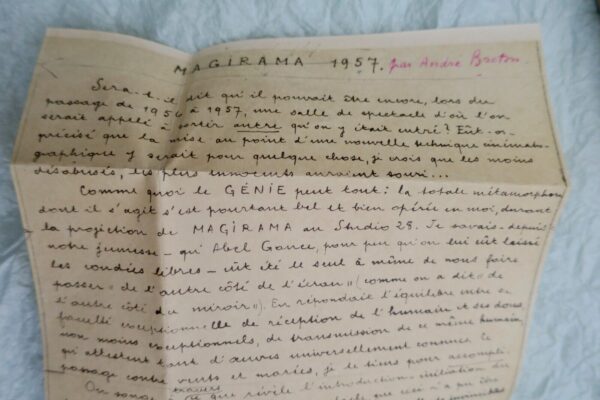 MAGIRAMA 1957. par André Breton
Sera-t-il dit qu'il pouvait être encore, lors du
passage de 1956 à 1957, une salle de spectacle d'où l'on
serait appelé à sortir autre qu'on y était entré? Eût-on
précisé que la mise au point d'une nouvelle technique cinémato-
graphique y serait pour quelque chose, je crois que les moins
désabusés, les plus innocents auraient souri...
Comme quoi le GÉNIE peut tout: la totale métamorphose
dont il s'agit s'est pourtant bel et bien opérée en moi, durant
la projection de MAGIRAMA au Studio 28. Je savais - depuis
notre jeunesse - qu'Abel Gance, pour peu qu'on lui eût laissé
les coudées libres - eût été le seul à même de nous faire
passer « de l'autre côté de l'écran » (comme on a dit « de
l'autre côté du miroir »). En répondait l'équilibre entre sa
faculté exceptionnelle de réception de l'humain et ses dons,
non moins exceptionnels, de transmission de ce même humain,
qu'attestent tant d'œuvres universellement connues. Ce
passage contre vents et marées, je le tiens pour accompli.
On songe à travers ce que révèle l'introduction: initiation du